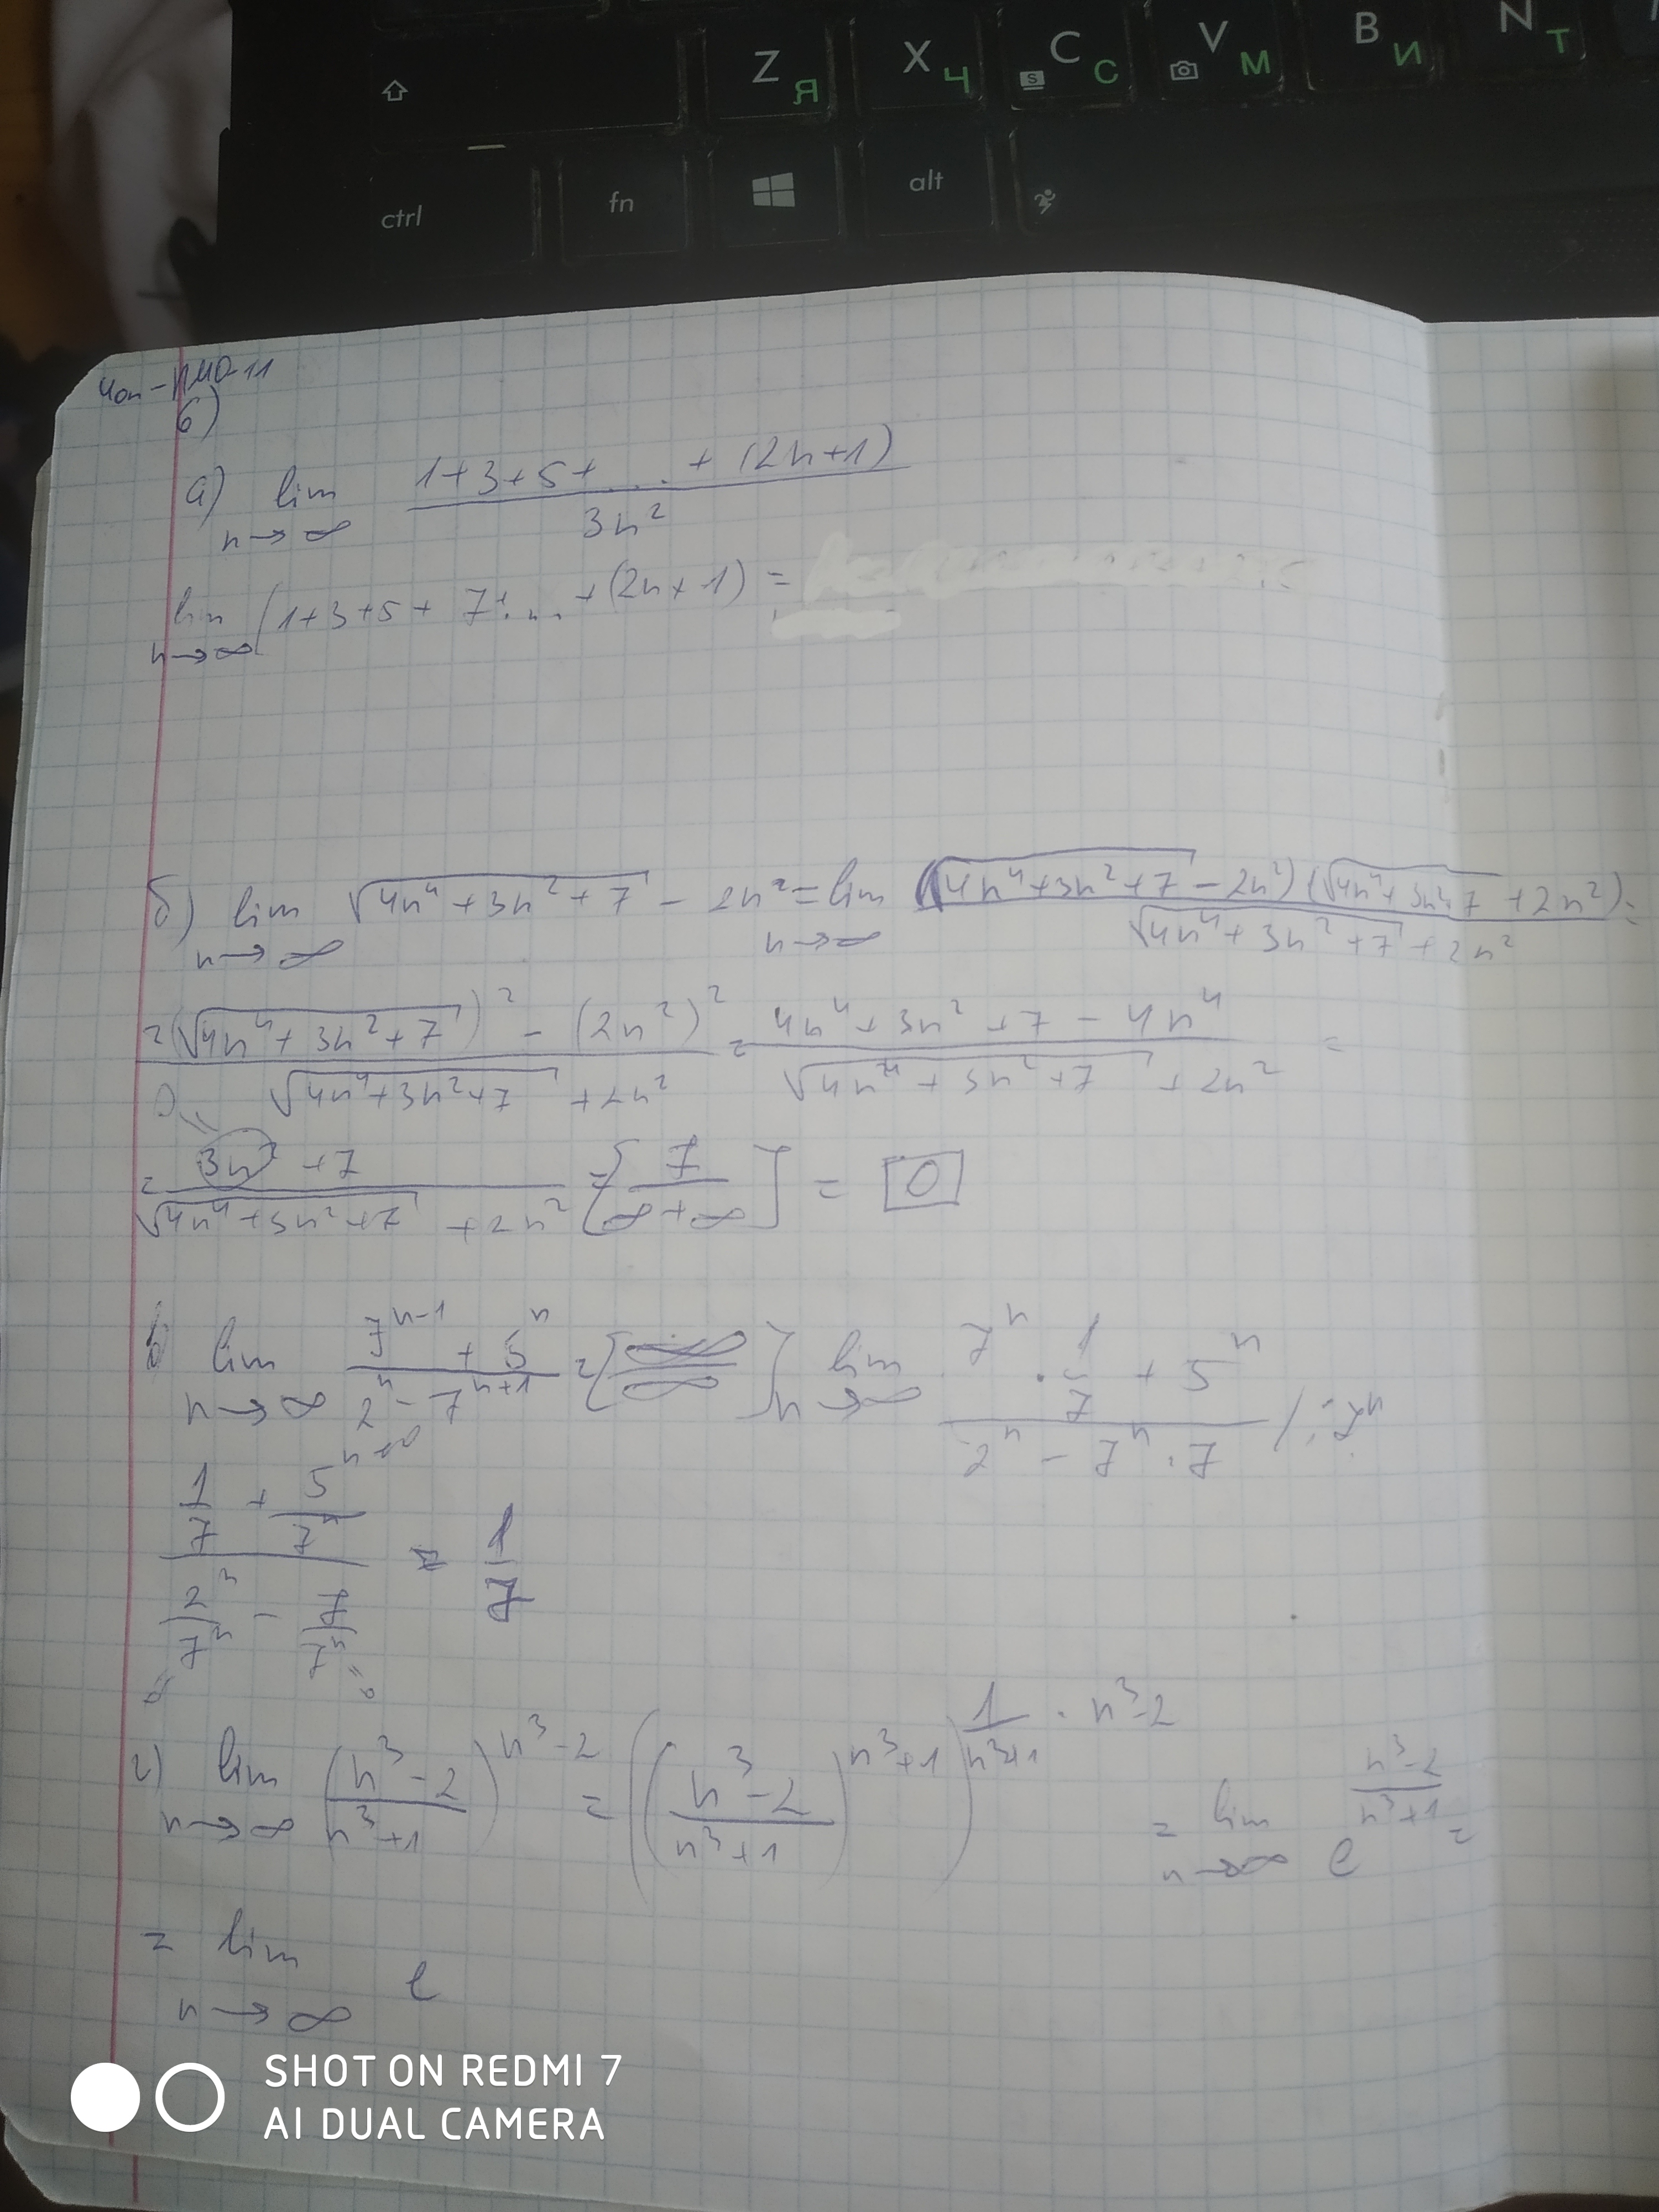 Z Я X Ч C С V М B И N Т
ctrl fn alt
6)
а) lim n→∞ (1+3+5+...+(2n+1))/(3n²)
lim n→∞ (1+3+5+7+...+(2n+1) =
б) lim n→∞ √(4n⁴+3n²+7) - 2n² = lim n→∞ ((√(4n⁴+3n²+7) - 2n²)(√(4n⁴+3n²+7) + 2n²))/(√(4n⁴+3n²+7) + 2n²) =
= ((√(4n⁴+3n²+7))² - (2n²)²)/(√(4n⁴+3n²+7) + 2n²) = (4n⁴+3n²+7-4n⁴)/(√(4n⁴+3n²+7) + 2n²) =
= (3n²+7)/(√(4n⁴+3n²+7) + 2n²) = [7/(∞+∞)] = 0
в) lim n→∞ (7ⁿ⁻¹+5ⁿ)/(2ⁿ-7ⁿ⁺¹) = [∞/∞] lim n→∞ (7ⁿ·1/7+5ⁿ)/(2ⁿ-7ⁿ·7) /:7ⁿ
(1/7+5ⁿ/7ⁿ)/(2ⁿ/7ⁿ-7/7ⁿ) = 1/7
г) lim n→∞ ((n³-2)/(n³+1))^(n³-2) = (((n³-2)/(n³+1))^(n³+1))^(1/(n³+1)·n³-2) = lim n→∞ e^((n³-2)/(n³+1)) =
= lim n→∞ e
SHOT ON REDMI 7
AI DUAL CAMERA